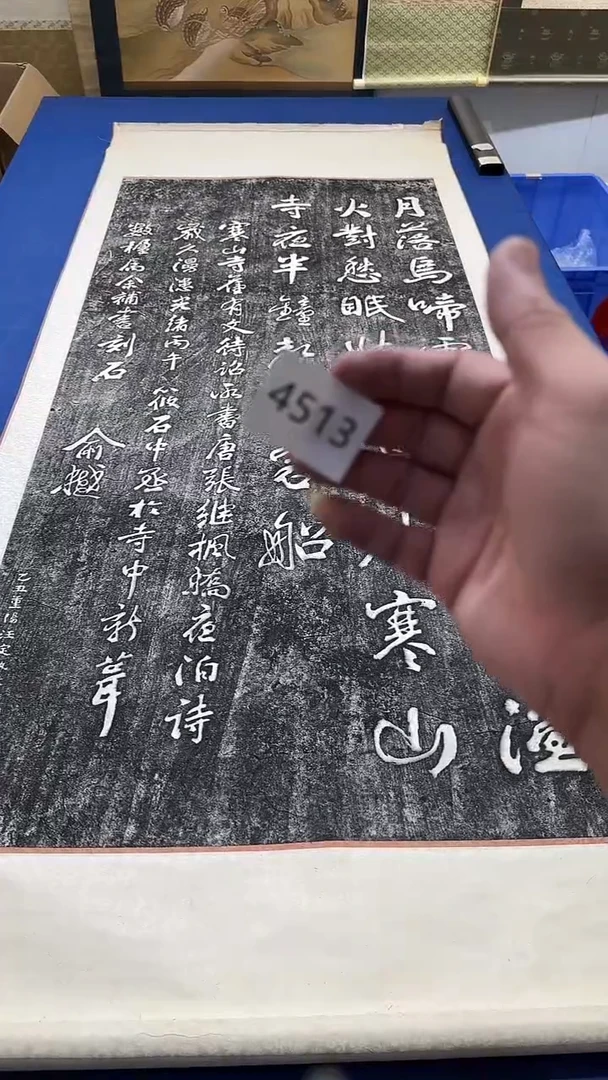 月落烏啼
漁
火對愁眠
寒山
寺夜半鐘
客船
寒山寺舊有文待詔所書唐張繼楓橋夜泊詩
歲久漫漶光緒丙午筱石中丞於寺中新葺
數楹屬余補書刻石
俞樾
乙丑重陽汪定
4513